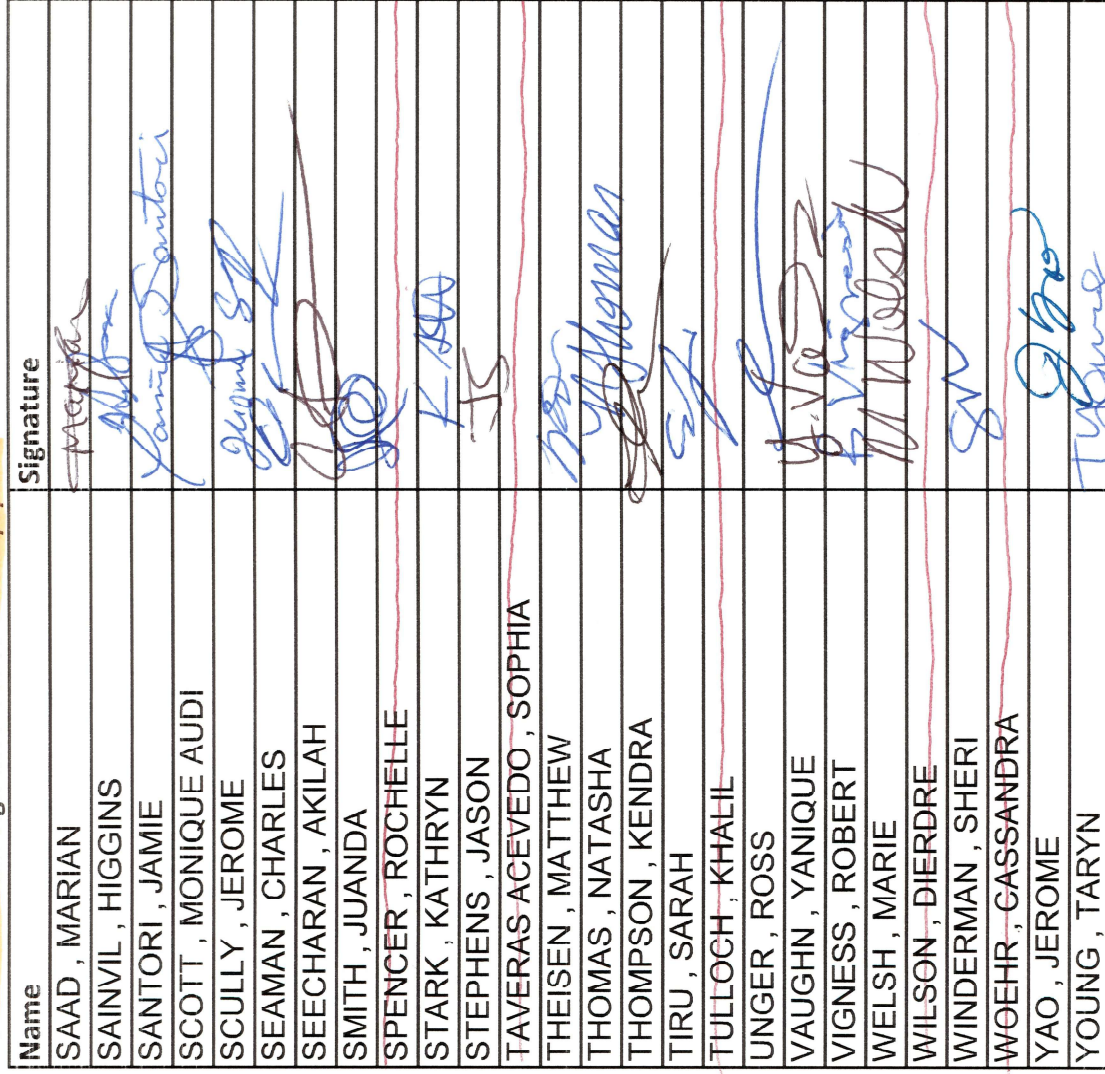 Name Signature
SAAD , MARIAN
SAINVIL , HIGGINS
SANTORI , JAMIE Jamie Santori
SCOTT , MONIQUE AUDI
SCULLY , JEROME
SEAMAN , CHARLES
SEECHARAN , AKILAH
SMITH , JUANDA
SPENCER , ROCHELLE
STARK , KATHRYN
STEPHENS , JASON JS
TAVERAS ACEVEDO , SOPHIA
THEISEN , MATTHEW
THOMAS , NATASHA NThomas
THOMPSON , KENDRA
TIRU , SARAH
TULLOCH , KHALIL
UNGER , ROSS
VAUGHN , YANIQUE
VIGNESS , ROBERT
WELSH , MARIE M Welsh
WILSON , DIERDRE
WINDERMAN , SHERI SW
WOEHR , CASSANDRA
YAO , JEROME
YOUNG , TARYN